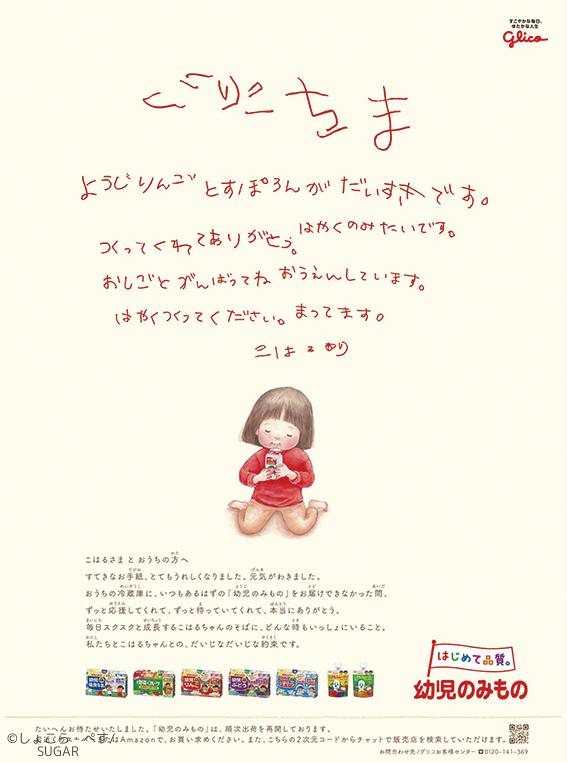 すこやかな毎日、
ゆたかな人生
Glico
ぐりこちま
ようじりんごとすぽろんがだいすきです。
はやくのみたいです。
つくってくれてありがとう。
おしごとがんばってねおうえんしています。
はやくつくってください。まってます。
こはるより
こはるさま と おうちの方へ
すてきなお手紙、とてもうれしくなりました。元気がわきました。
おうちの冷蔵庫に、いつもあるはずの「幼児のみもの」をお届けできなかった間、
ずっと応援してくれて、ずっと待っていてくれて、本当にありがとう。
毎日スクスクと成長するこはるちゃんのそばに、どんな時もいっしょにいること。
私たちとこはるちゃんとの、だいじなだいじな約束です。
はじめて品質。
幼児のみもの
たいへんお待たせいたしました。「幼児のみもの」は、順次出荷を再開しております。
Amazonで、お買い求めください。また、こちらの2次元コードからチャットで販売店を検索していただけます。
お問い合わせ先/グリコお客様センター ☎0120-141-369
©しょこら・べす/
SUGAR